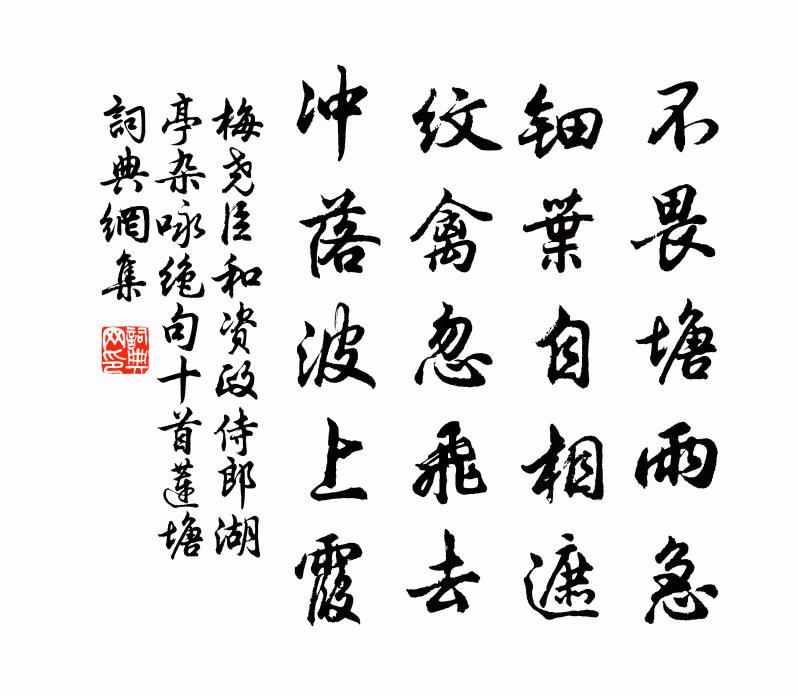 不畏塘雨急
钿葉自相遮
纹禽忽飛去
冲落波上霞
梅尧臣和资政侍郎湖
亭杂咏绝句十首莲塘
詞典網集
詞典網印